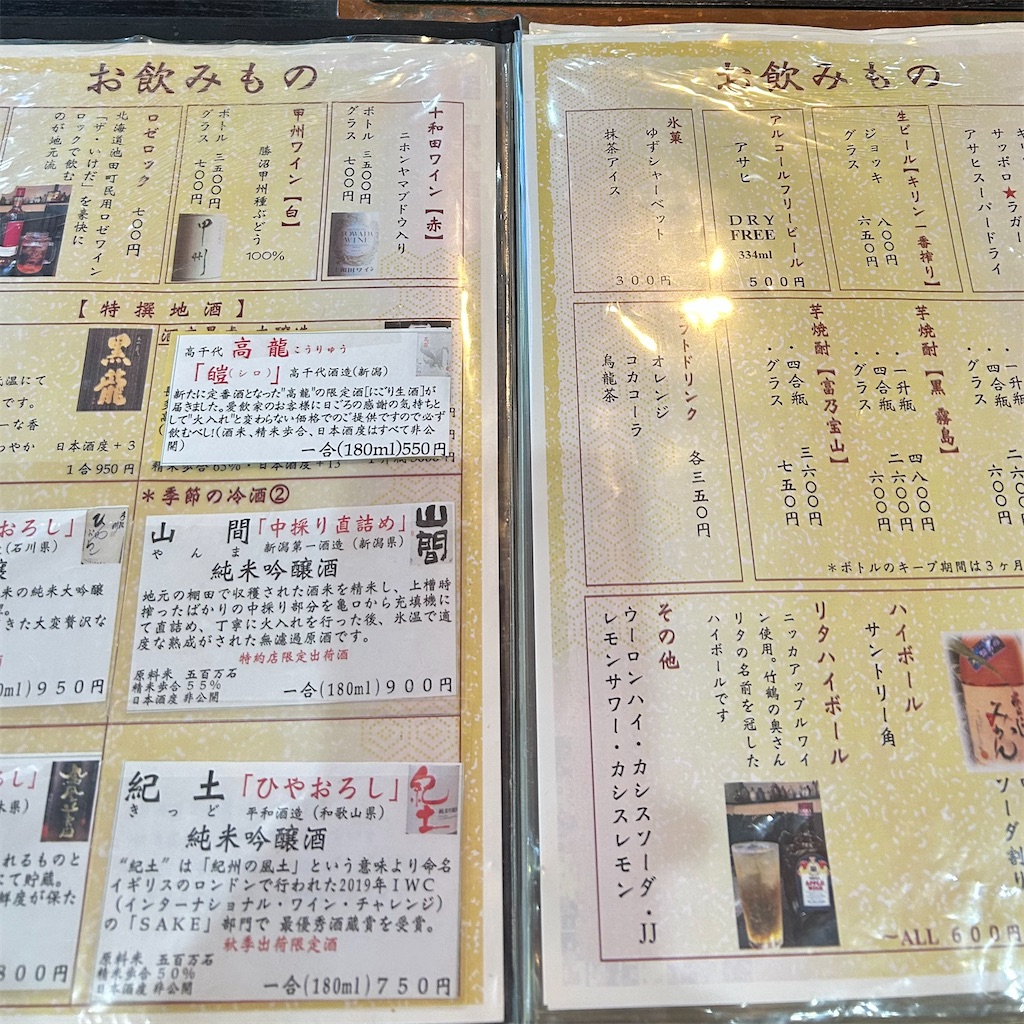 お飲みもの
十和田ワイン【赤】
ニホンヤマブドウ入り
ボトル 三五〇〇円
グラス 七〇〇円
TOWADA
WINE
甲州ワイン【白】
勝沼甲州種ぶどう
100%
ボトル 三五〇〇円
グラス 七〇〇円
甲州
ロゼロック 七〇〇円
北海道池田町民用ロゼワイン
「ザ・いけだ」を豪快に
ロックで飲む
のが地元流
【特撰地酒】
黒龍
高千代 高龍こうりゅう
「皚(シロ)」高千代酒造(新潟)
新たに定番酒となった"高龍"の限定酒[にごり生酒]が
届きました。愛飲家のお客様に日ごろの感謝の気持ちと
して"火入れ"と変わらない価格でのご提供ですので必ず
飲むべし!(酒米、精米歩合、日本酒度はすべて非公
開)
一合(180ml)550円
低温にて
です。
ーな香
わやか 日本酒度+3
1合950円
*季節の冷酒②
山間「中採り直詰め」
やんま 新潟第一酒造(新潟県)
純米吟醸酒
地元の棚田で収穫された酒米を精米し、上槽時
搾ったばかりの中採り部分を亀口から充填機に
て直詰め、丁寧に火入れを行った後、氷温で適
度な熟成がされた無濾過原酒です。
特約店限定出荷酒
原料米 五百万石
精米歩合55%
日本酒度 非公開
一合(180ml)900円
山間
おろし」
(石川県)
醸
米の純米大吟醸
きた大変贅沢な
ml)950円
紀土「ひやおろし」
きっど 平和酒造(和歌山県)
純米吟醸酒
“紀土”は「紀州の風土」という意味より命名
イギリスのロンドンで行われた2019年IWC
(インターナショナル・ワイン・チャレンジ)
の「SAKE」部門で 最優秀酒蔵賞を受賞。
秋季出荷限定酒
原料米 五百万石
精米歩合50%
日本酒度 非公開
一合(180ml)750円
紀土
ろし」
れるものと
て貯蔵。
鮮度が保た
800円
お飲みもの
サッポロ★ラガー
アサヒスーパードライ
生ビール【キリン一番搾り】
ジョッキ 八〇〇円
グラス 六五〇円
アルコールフリービール
アサヒ
DRY
FREE
334ml
500円
氷菓
ゆずシャーベット
抹茶アイス
300円
・一升瓶
・四合瓶
・グラス
芋焼酎【黒霧島】
・一升瓶 四八〇〇円
・四合瓶 二六〇〇円
・グラス 六〇〇円
芋焼酎【富乃宝山】
・四合瓶 三六〇〇円
・グラス 七五〇円
*ボトルのキープ期間は3ヶ月
フトドリンク
オレンジ
コカコーラ
烏龍茶
各三五〇円
みかん
ソーダ割り
ハイボール
サントリー角
リタハイボール
ニッカアップルワイ
ン使用。竹鶴の奥さん
リタの名前を冠した
ハイボールです
その他
ウーロンハイ・カシスソーダ・JJ
レモンサワー・カシスレモン
~ALL 600円